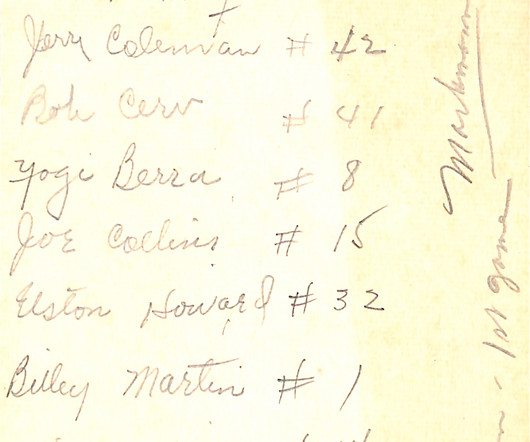 Jerry Coleman # 42
Bob Cerv # 41
Yogi Berra # 8
Joe Collins # 15
Elston Howard # 32
Billy Martin # 1
1st game